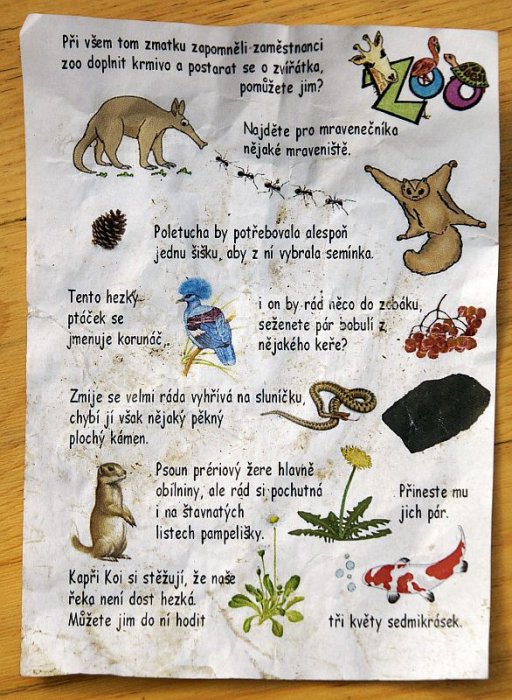 Při všem tom zmatku zapomněli zaměstnanci
zoo doplnit krmivo a postarat se o zvířátka,
pomůžete jim?
ZOO
Najděte pro mravenečníka
nějaké mraveniště.
Poletucha by potřebovala alespoň
jednu šišku, aby z ní vybrala semínka.
Tento hezký
ptáček se
jmenuje korunáč,
i on by rád něco do zobáku,
seženete pár bobulí z
nějakého keře?
Zmije se velmi ráda vyhřívá na sluníčku,
chybí jí však nějaký pěkný
plochý kámen.
Psoun prériový žere hlavně
obilniny, ale rád si pochutná
i na šťavnatých
listech pampelišky.
Přineste mu
jich pár.
Kapři Koi si stěžují, že naše
řeka není dost hezká.
Můžete jim do ní hodit
tři květy sedmikrásek.